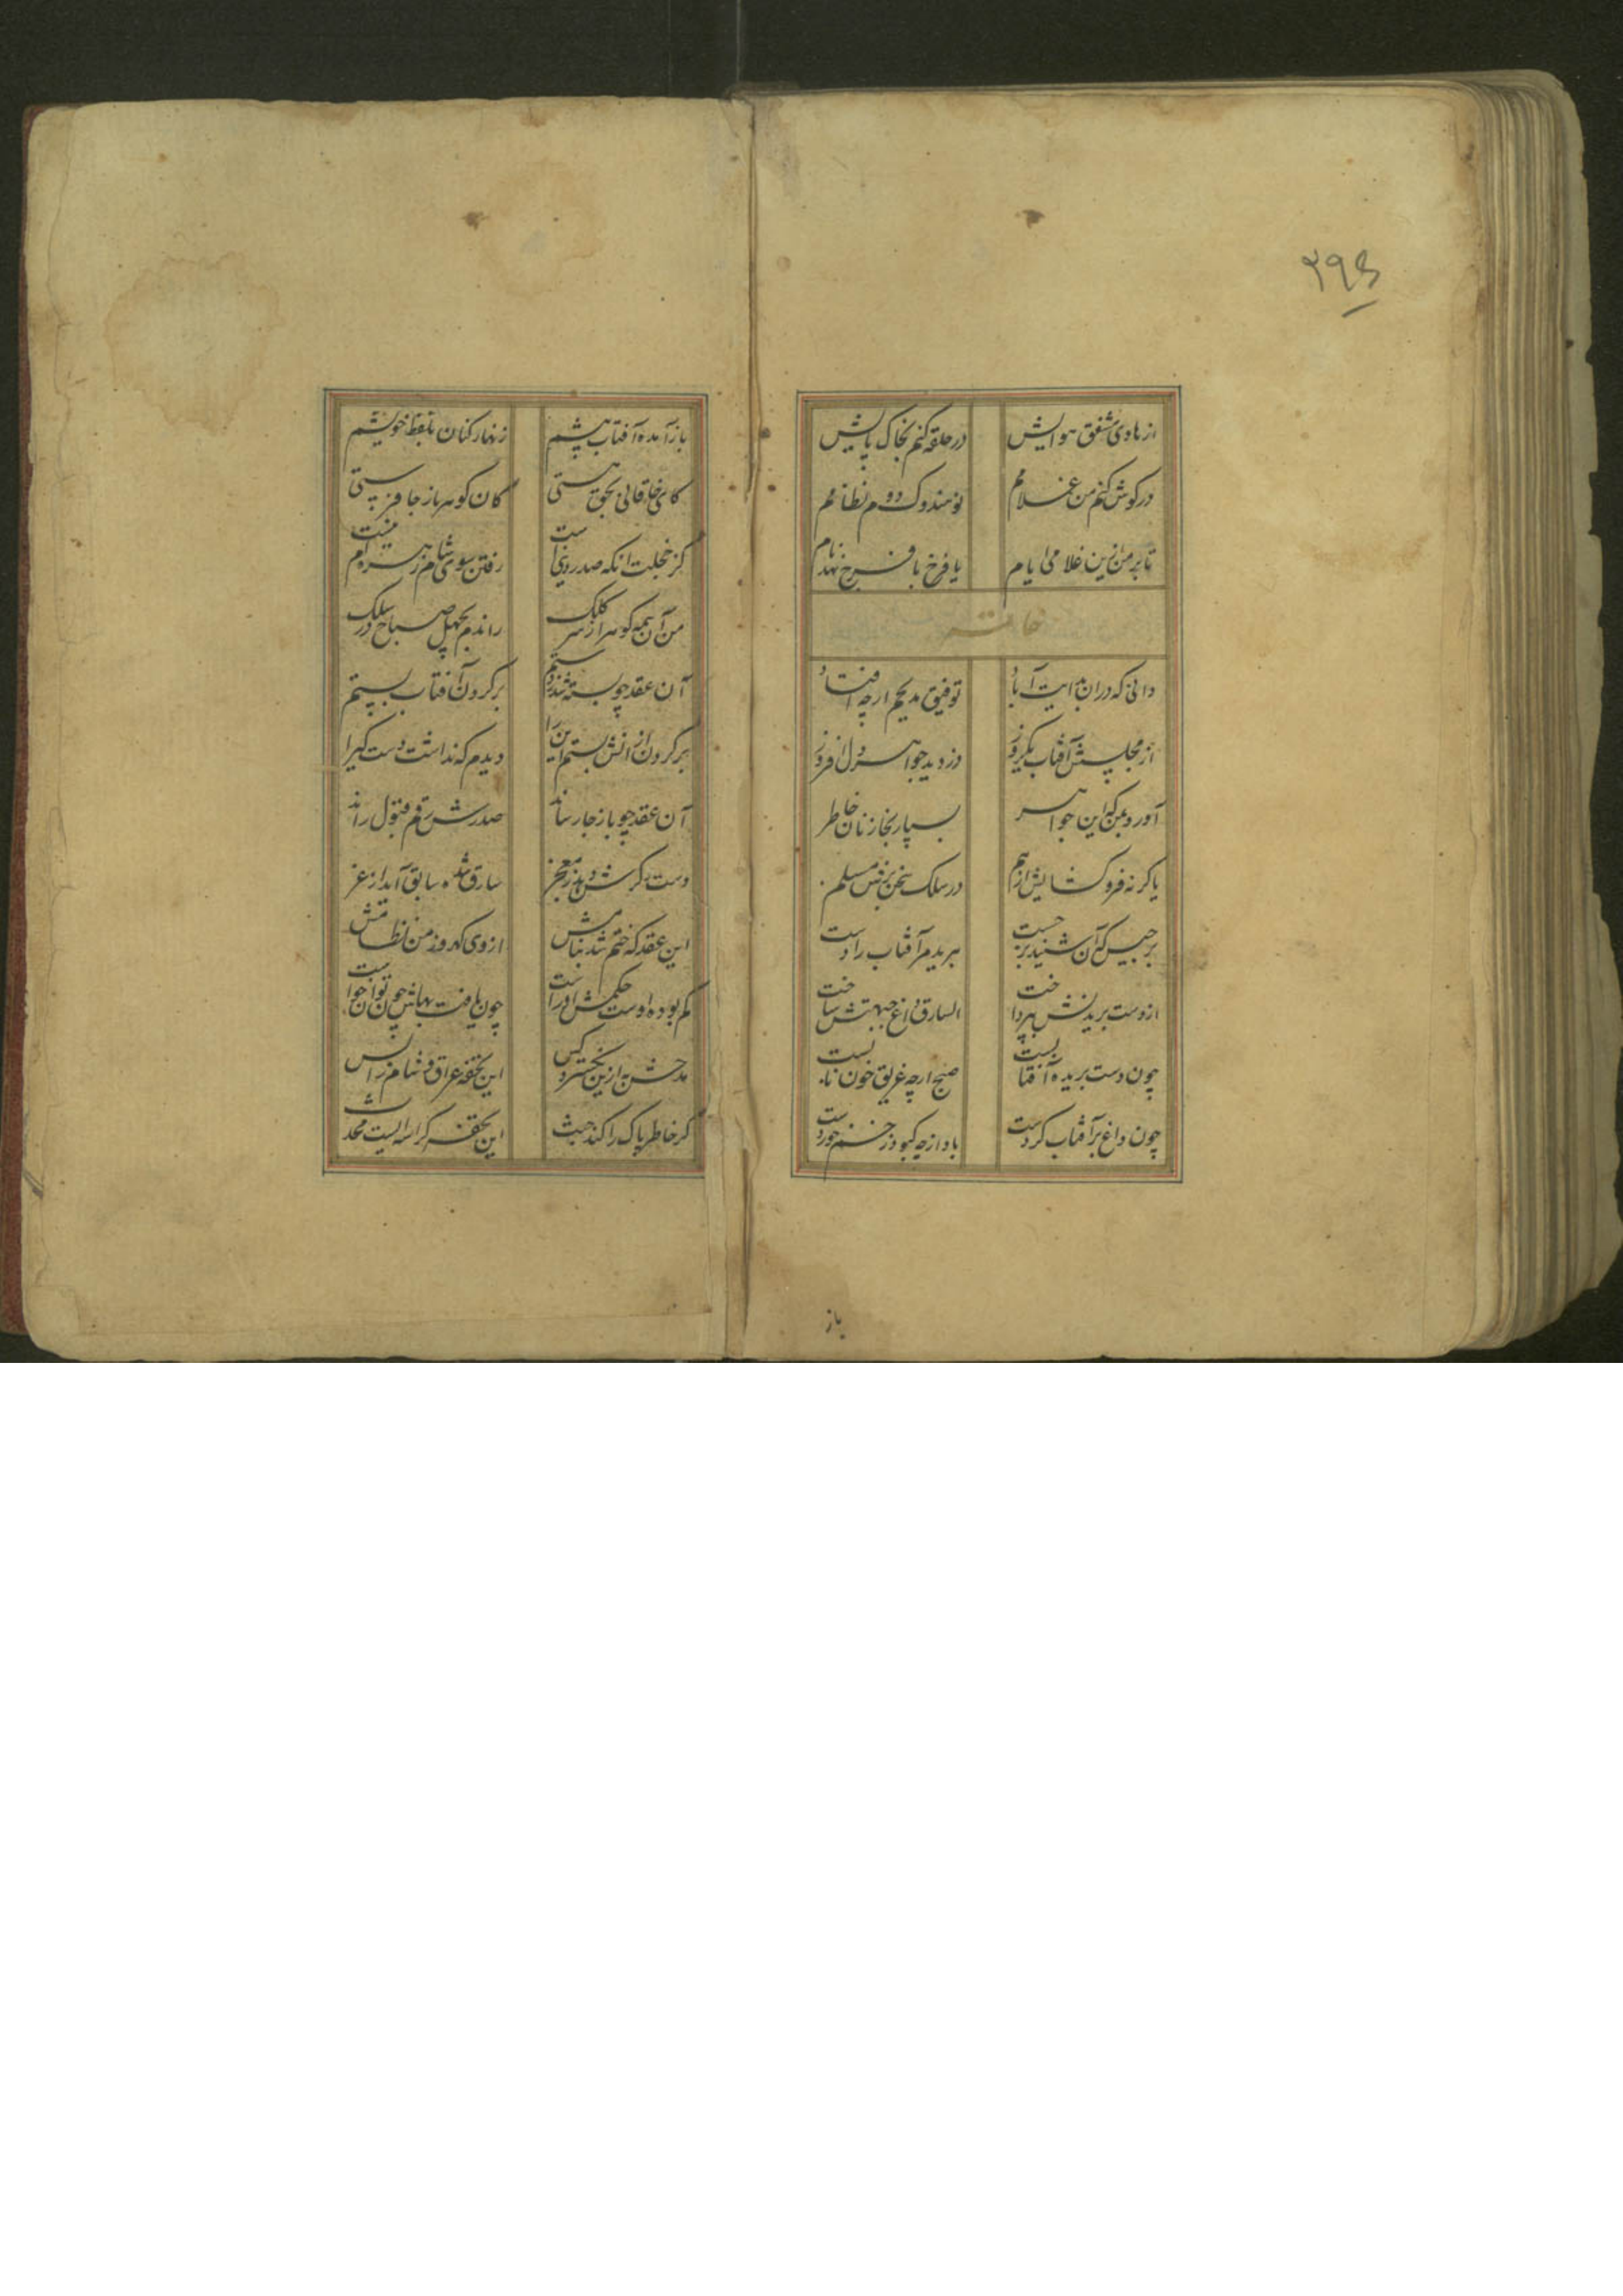 ۲۹۵
از هادی مشفق هوایش در حلقه کنم بخاک پایش
در کوش کنم من غلامم نو هندوک دوم نظامم
تا بر من ازین غلامی ایام یا فرخ یا فرخ نهد نام
خاتمه
دانی که دران بدایت آباد توفیق مدیحم ارچه افتاد
از مجلسش آفتاب یکروز دزدید جواهر دل افروز
آورد بمن که این جواهر بسپار بخازنان خاطر
یا کرنه فروکشایش از هم در سلک سخن نفس مسلم
برجیس که آن شنید برجست ببرید مر آفتاب را دست
از دست بریدنش بپرداخت السارق داغ جبهتش ساخت
چون دست بریده آفتابست صبح ارچه غریق خون نابست
چون داغ بر آفتاب کردست باد ازچه کبود زخم خوردست
باز
باز آمده آفتاب پیشم زنهار کنان بلفظ خویشم
کای خاقانی بحق هستی کان کوهر باز جا فرستی
کز خجلت انکه صدر دینست رفتن سوی شام زهره ام نیست
من آن همه کوهر از سر کلک راندم بچهل صباح در سلک
آن عقد چو بسته شد ز دستم بر کردن آفتاب بستم
بر کردن از انش بستم این را دیدم که نداشت دست کیرا
آن عقد چو باز جا رساند صدرش رقم قبول راند
دست دکرش دهد ز معجز سارق شده سابق آید از عز
این عقد که ختم شد بنامش از وی کهر وز من نظامش
کم بوده اوست حکمش اوراست چون یافت بهاش چون توان خواست
مدحش به ازین نکسترد کس این تحفه عراق و شام را بس
کر خاطر پاک را کند حث این تحفه کراسه ایست محدث